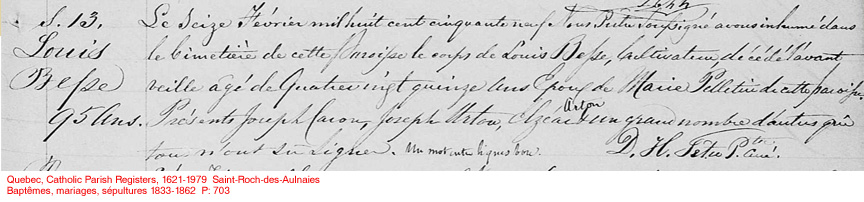 S. 13,
Louis
Besse
95 Ans.
Le Seize Février mil huit cent cinquante neuf Nous Prêtre Soussigné avons inhumé dans
le Cimetière de cette Paroisse le corps de Louis Besse, Cultivateur, décédé l'avant
veille agé de Quatre vingt quinze Ans Epoux de Marie Pelletier de cette paroisse.
Arton
Présents Joseph Caron, Joseph Urton, Elzear & un grand nombre d'autres qui
tous n'ont su signer. Un mot entre lignes bon. D. H. Tetu Ptre Curé.
Quebec, Catholic Parish Registers, 1621-1979 Saint-Roch-des-Aulnaies
Baptêmes, mariages, sépultures 1833-1862 P: 703